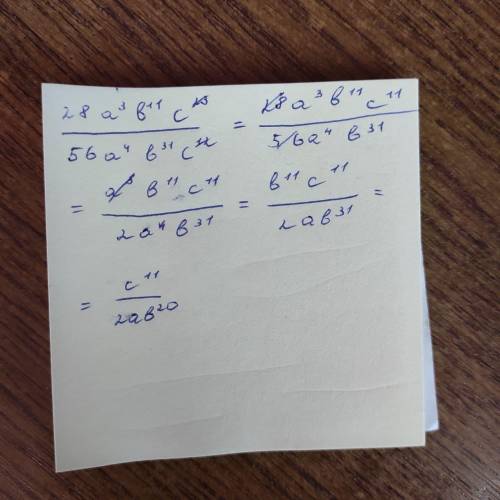 28a³b¹¹c²³ / 56a⁴b³¹c¹² = 28a³b¹¹c¹¹ / 56a⁴b³¹
= a³b¹¹c¹¹ / 2a⁴b³¹ = b¹¹c¹¹ / 2ab³¹ =
= c¹¹ / 2ab²⁰